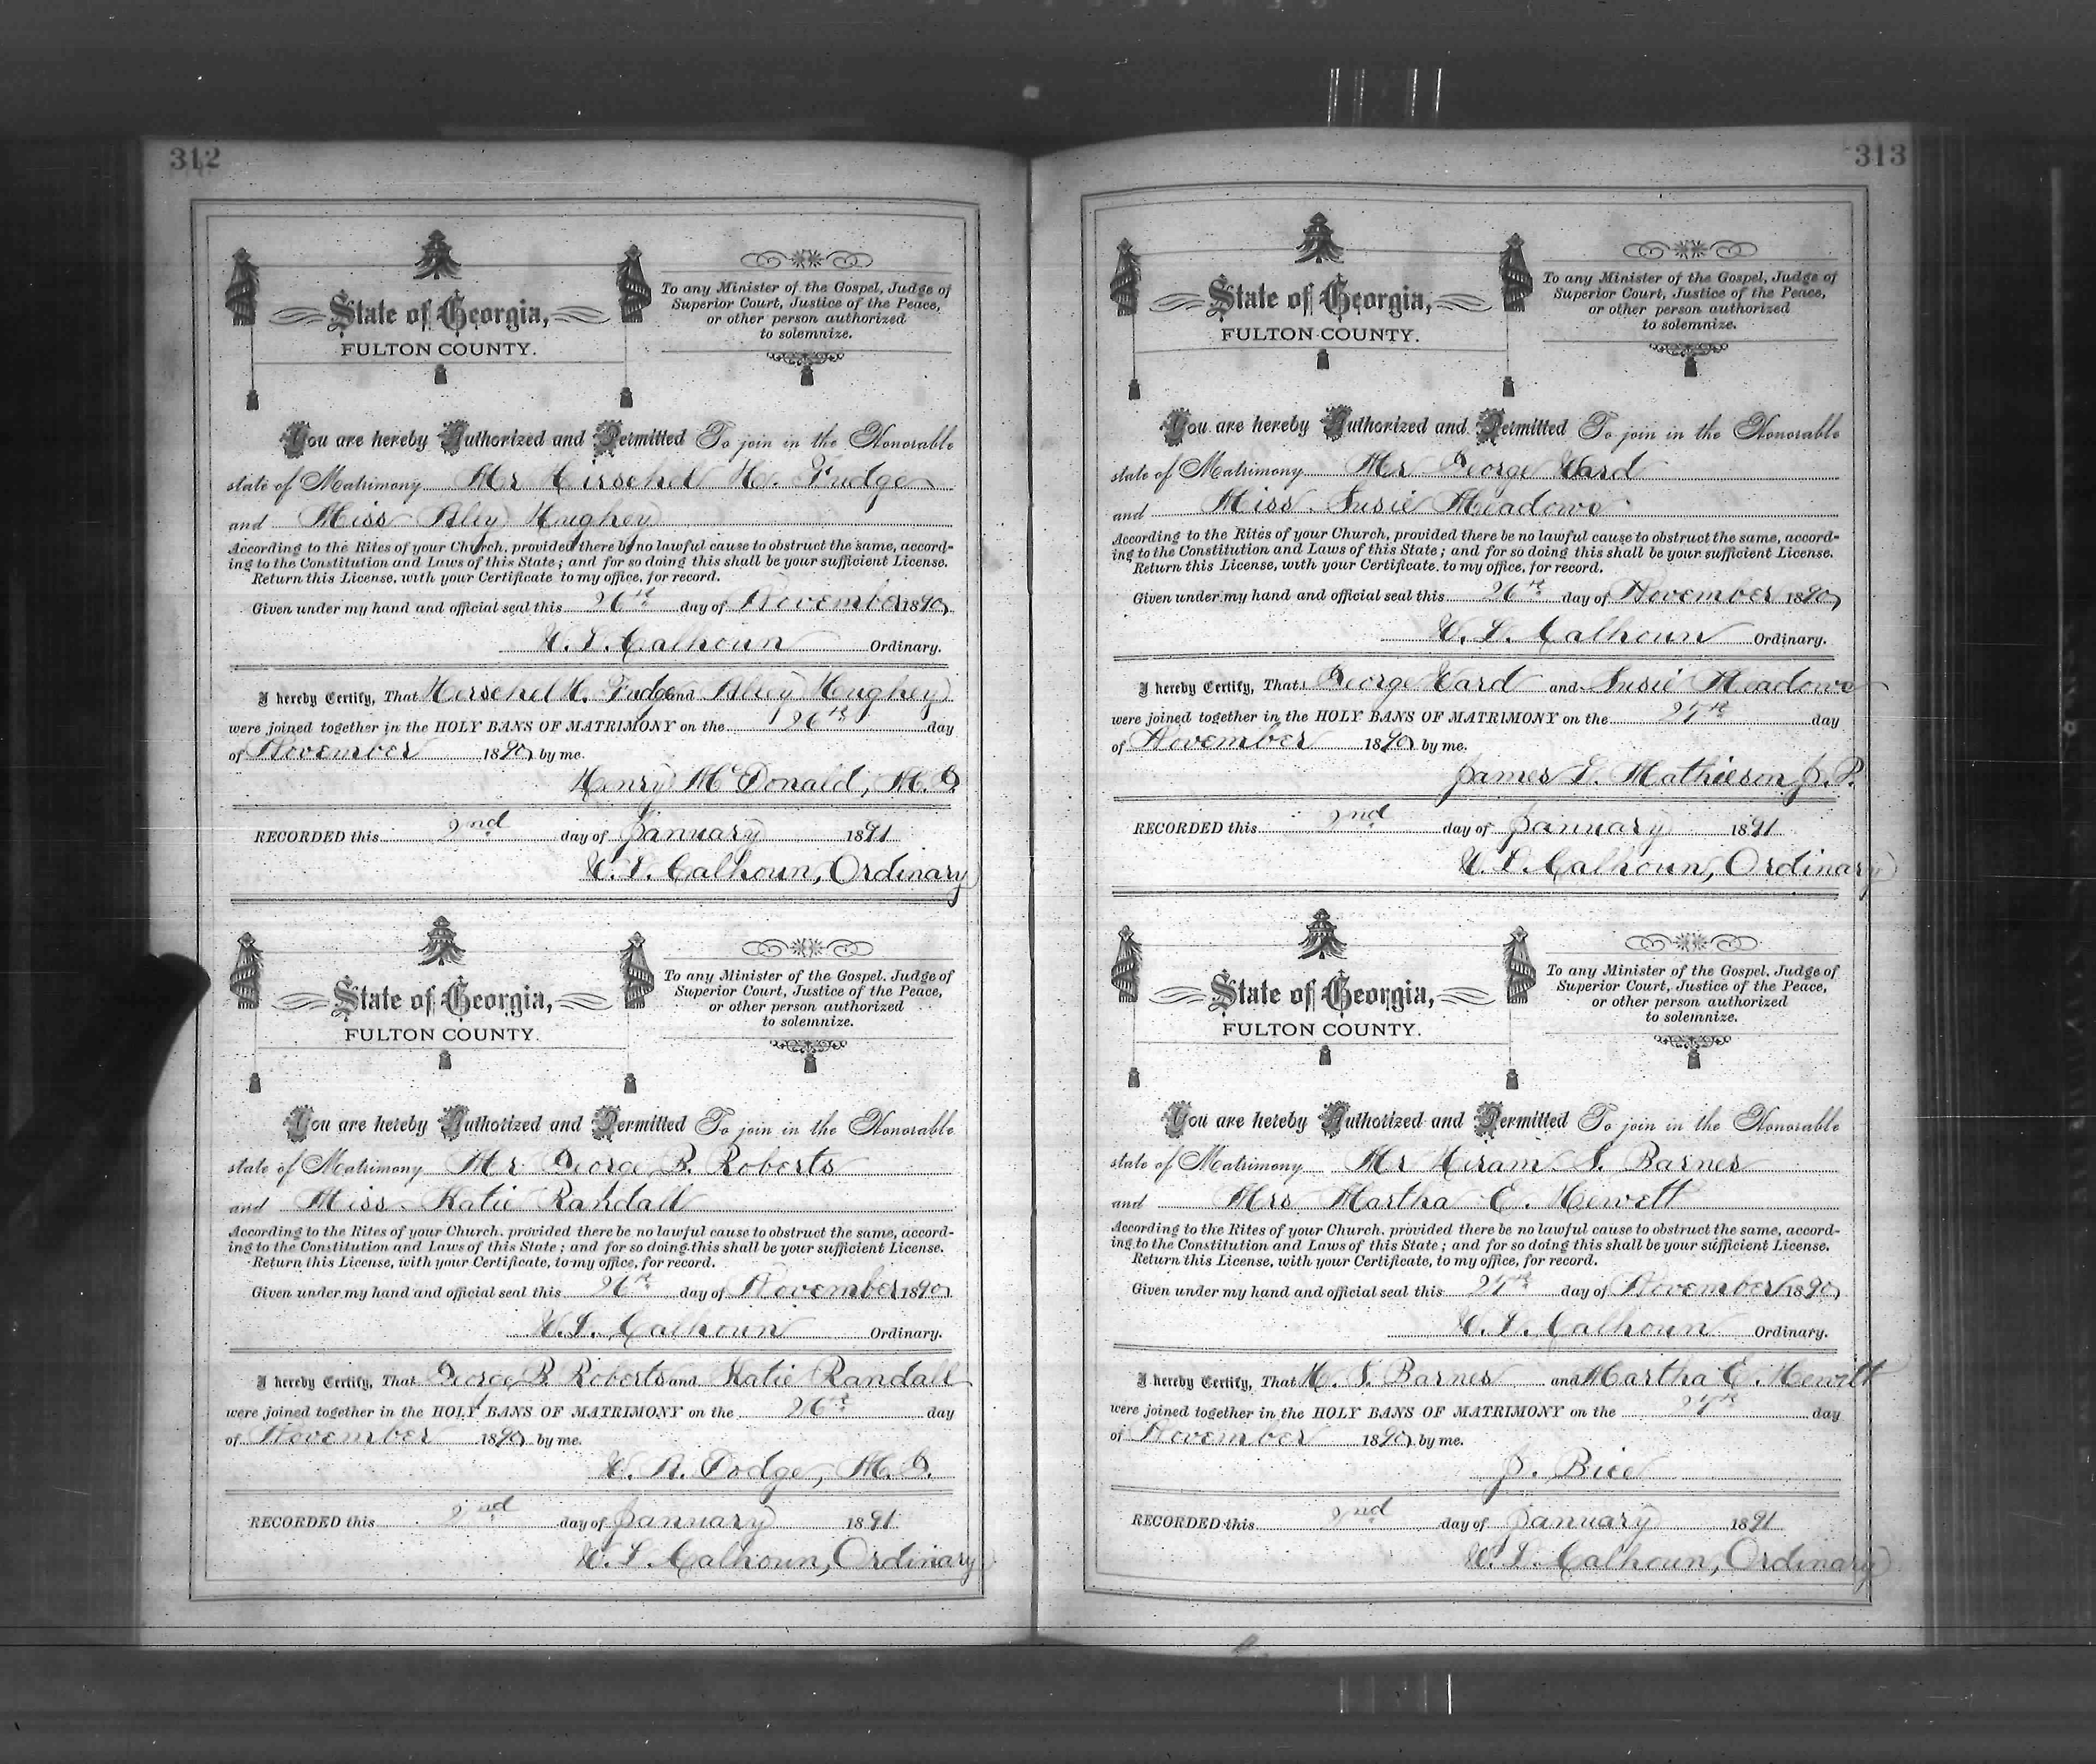 312
State of Georgia,
FULTON COUNTY.
To any Minister of the Gospel, Judge of
Superior Court, Justice of the Peace,
or other person authorized
to solemnize.
You are hereby Authorized and Permitted To join in the Honorable
state of Matrimony Mr Hirschel H. Fudge
and Miss Hughey
According to the Rites of your Church, provided there be no lawful cause to obstruct the same, accord-
ing to the Constitution and Laws of this State; and for so doing this shall be your sufficient License.
Return this License, with your Certificate to my office, for record.
Given under my hand and official seal this 26th day of November 1890
W. L. Calhoun Ordinary.
I hereby Certify, That Herschel H. Fudge and Hughey
were joined together in the HOLY BANS OF MATRIMONY on the 26th day
of November 1890 by me.
Henry McDonald, M. G
RECORDED this 2nd day of January 1891
W. L. Calhoun, Ordinary
State of Georgia,
FULTON COUNTY.
To any Minister of the Gospel, Judge of
Superior Court, Justice of the Peace,
or other person authorized
to solemnize.
You are hereby Authorized and Permitted To join in the Honorable
state of Matrimony Mr George B. Roberts
and Miss Katie Randall
According to the Rites of your Church, provided there be no lawful cause to obstruct the same, accord-
ing to the Constitution and Laws of this State; and for so doing this shall be your sufficient License.
Return this License, with your Certificate, to my office, for record.
Given under my hand and official seal this 26th day of November 1890
W. L. Calhoun Ordinary.
I hereby Certify, That George B. Roberts and Katie Randall
were joined together in the HOLY BANS OF MATRIMONY on the 26th day
of November 1890 by me.
W. A. Dodge, M. G.
RECORDED this 2nd day of January 1891
W. L. Calhoun, Ordinary
313
State of Georgia,
FULTON COUNTY.
To any Minister of the Gospel, Judge of
Superior Court, Justice of the Peace,
or other person authorized
to solemnize.
You are hereby Authorized and Permitted To join in the Honorable
state of Matrimony Mr George Ward
and Miss Susie Meadows
According to the Rites of your Church, provided there be no lawful cause to obstruct the same, accord-
ing to the Constitution and Laws of this State; and for so doing this shall be your sufficient License.
Return this License, with your Certificate, to my office, for record.
Given under my hand and official seal this 26th day of November 1890
W. L. Calhoun Ordinary.
I hereby Certify, That George Ward and Susie Meadows
were joined together in the HOLY BANS OF MATRIMONY on the 27th day
of November 1890 by me.
James L. Mathieson J. P.
RECORDED this 2nd day of January 1891
W. L. Calhoun, Ordinary
State of Georgia,
FULTON COUNTY.
To any Minister of the Gospel, Judge of
Superior Court, Justice of the Peace,
or other person authorized
to solemnize.
You are hereby Authorized and Permitted To join in the Honorable
state of Matrimony Mr Hiram S. Barnes
and Mrs Martha E. Hewett
According to the Rites of your Church, provided there be no lawful cause to obstruct the same, accord-
ing to the Constitution and Laws of this State; and for so doing this shall be your sufficient License.
Return this License, with your Certificate, to my office, for record.
Given under my hand and official seal this 27th day of November 1890
W. L. Calhoun Ordinary.
I hereby Certify, That H. S. Barnes and Martha E. Hewett
were joined together in the HOLY BANS OF MATRIMONY on the 27th day
of November 1890 by me.
J. Bice
RECORDED this 2nd day of January 1891
W. L. Calhoun, Ordinary